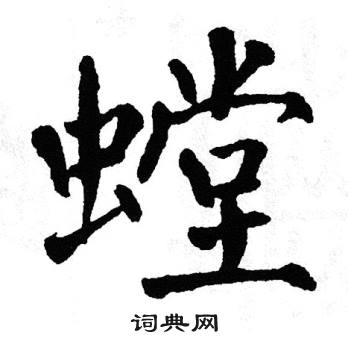 螳
词典网